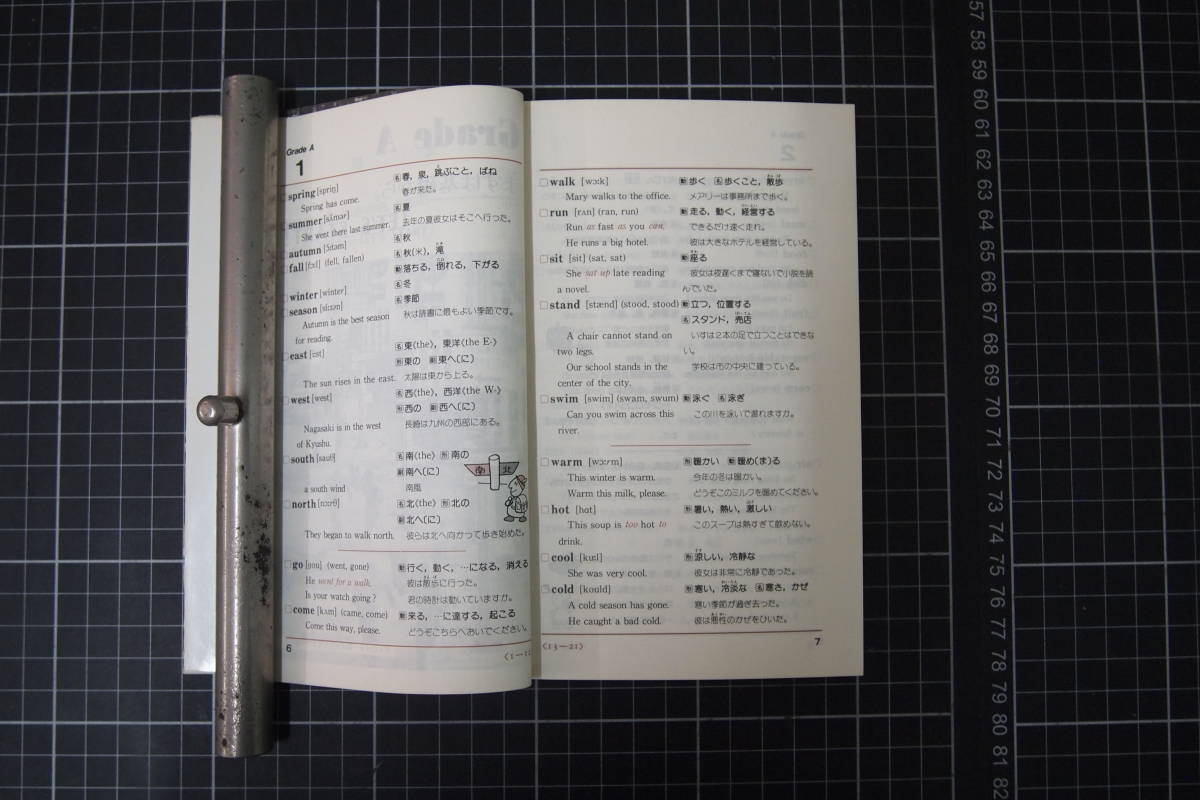 Grade A
1
spring [spriŋ] 名春，泉，跳ぶこと，ばね
Spring has come. 春が来た。
summer [sʌ́mər] 名夏
She went there last summer. 去年の夏彼女はそこへ行った。
autumn [ɔ́ːtəm] 名秋
fall [fɔːl] (fell, fallen) 名秋(米)，滝
動落ちる，倒れる，下がる
winter [wíntər] 名冬
season [síːzən] 名季節
Autumn is the best season 秋は読書に最もよい季節です。
for reading.
east [iːst] 名東〈the〉，東洋〈the E-〉
形東の 副東へ〔に〕
The sun rises in the east. 太陽は東から上る。
west [west] 名西〈the〉，西洋〈the W-〉
形西の 副西へ〔に〕
Nagasaki is in the west 長崎は九州の西部にある。
of Kyushu.
south [sauθ] 名南〈the〉 形南の
副南へ〔に〕
a south wind 南風
南 北
north [nɔːrθ] 名北〈the〉 形北の
副北へ〔に〕
They began to walk north. 彼らは北へ向かって歩き始めた。
go [gou] (went, gone) 動行く，動く，…になる，消える
He went for a walk. 彼は散歩に行った。
Is your watch going? 君の時計は動いていますか。
come [kʌm] (came, come) 動来る，…に達する，起こる
Come this way, please. どうぞこちらへおいでください。
6
walk [wɔːk] 動歩く 名歩くこと，散歩
Mary walks to the office. メアリーは事務所まで歩く。
run [rʌn] (ran, run) 動走る，動く，経営する
Run as fast as you can. できるだけ速く走れ。
He runs a big hotel. 彼は大きなホテルを経営している。
sit [sit] (sat, sat) 動座る
She sat up late reading 彼女は夜遅くまで寝ないで小説を読
a novel. んでいた。
stand [stænd] (stood, stood) 動立つ，位置する
名スタンド，売店
A chair cannot stand on いすは2本の足で立つことはできな
two legs. い。
Our school stands in the 学校は市の中央に建っている。
center of the city.
swim [swim] (swam, swum) 動泳ぐ 名泳ぎ
Can you swim across this この川を泳いで渡れますか。
river.
warm [wɔːrm] 形暖かい 動暖め(ま)る
This winter is warm. 今年の冬は暖かい。
Warm this milk, please. どうぞこのミルクを暖めてください。
hot [hɑt] 形暑い，熱い，激しい
This soup is too hot to このスープは熱すぎて飲めない。
drink.
cool [kuːl] 形涼しい，冷静な
She was very cool. 彼女は非常に冷静であった。
cold [kould] 形寒い，冷淡な 名寒さ，かぜ
A cold season has gone. 寒い季節が過ぎ去った。
He caught a bad cold. 彼は悪性のかぜをひいた。
〈13—21〉
7
57
58
59
60
61
62
63
64
65
66
67
68
69
70
71
72
73
74
75
76
77
78
79
80
81
82